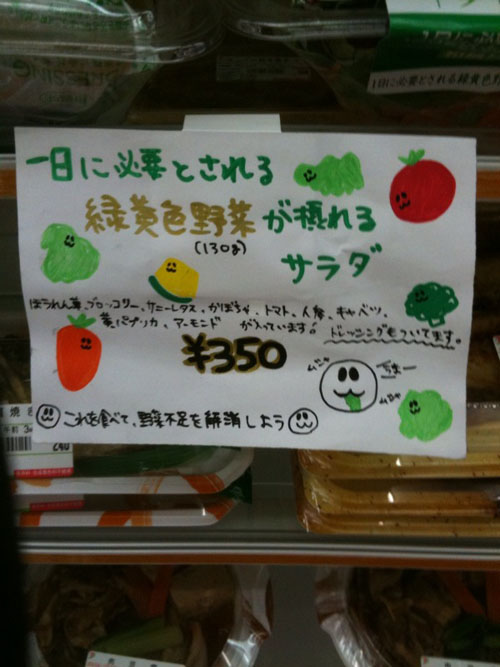 DRESSING
1日に必要とされる緑黄色野
一日に必要とされる
緑黄色野菜が摂れる
(130g)
サラダ
ほうれん草、ブロッコリー、サニーレタス、かぼちゃ、トマト、人参、キャベツ、
黄パプリカ、アーモンド が入っています。
ドレッシングもついてます。
¥350
ムシャ
うまー
ムシャ
これを食べて、野菜不足を解消しよう